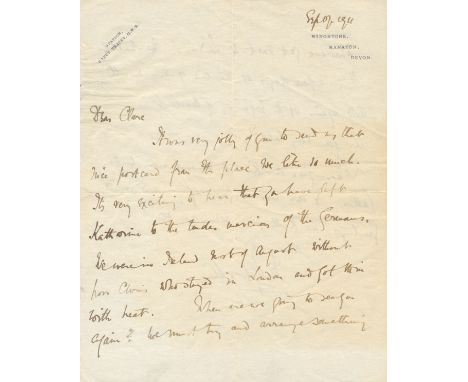 Sep 07. 1911
WINGSTONE,
MANATON,
DEVON.
STATION,
MORETONHAMPSTEAD, G.W.R.
Dear Clare
It was very jolly of you to send us that
nice postcard from the place we like so much.
Its very exciting to hear that you have left
Katharine to the tender mercies of the Germans.
We were in Ireland most of August without
poor Chris who stayed in London and got thin
with heat. When are we going to see you
again? We must try and arrange something